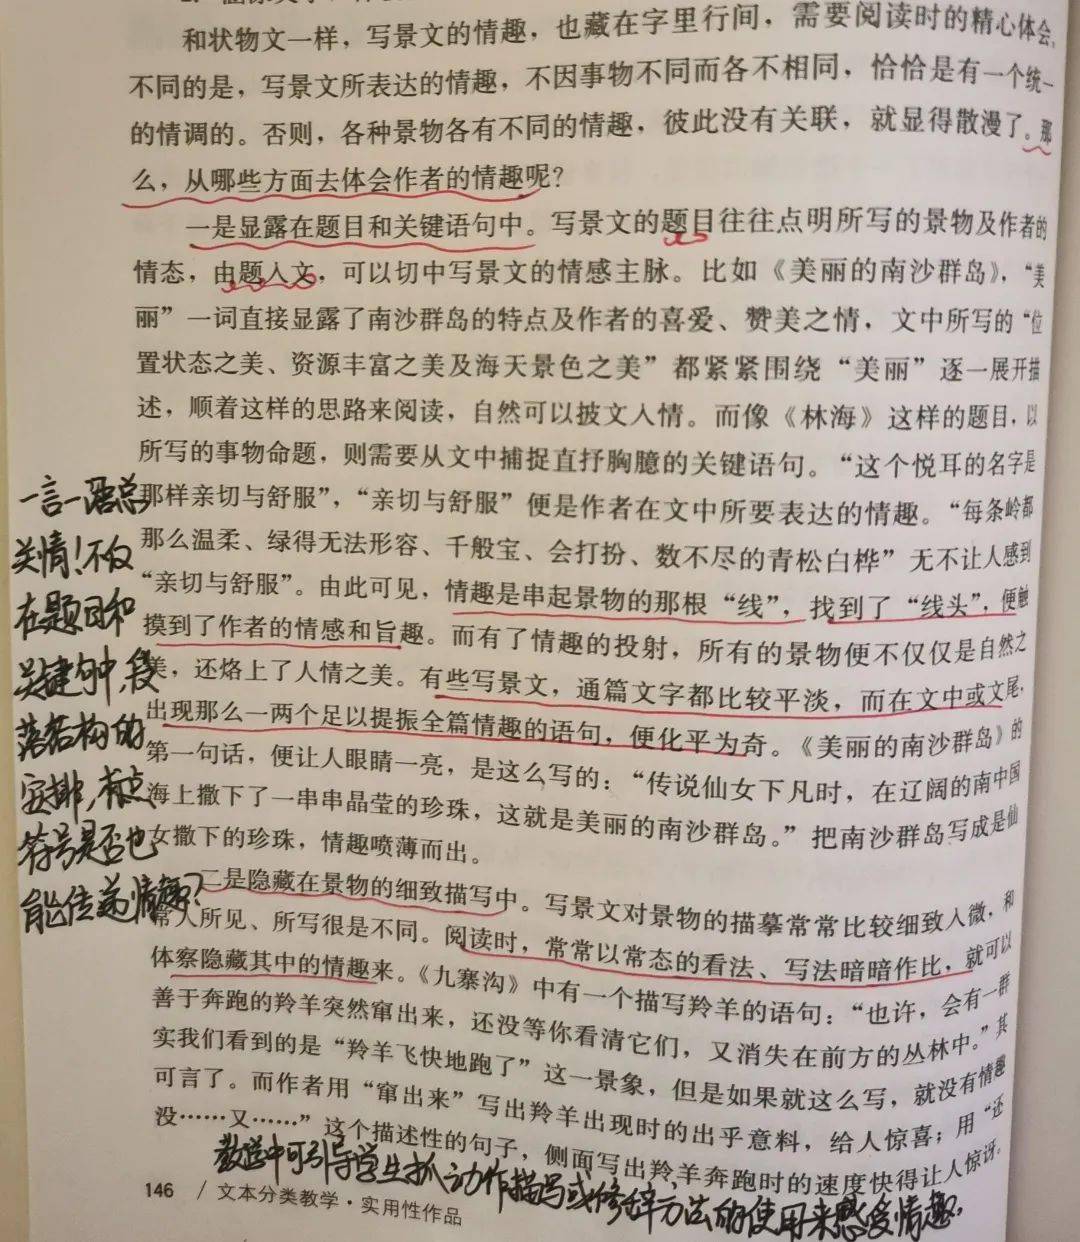 和状物文一样，写景文的情趣，也藏在字里行间，需要阅读时的精心体会，
不同的是，写景文所表达的情趣，不因事物不同而各不相同，恰恰是有一个统一
的情调的。否则，各种景物各有不同的情趣，彼此没有关联，就显得散漫了。那
么，从哪些方面去体会作者的情趣呢？
一是显露在题目和关键语句中。写景文的题目往往点明所写的景物及作者的
情态，由题入文，可以切中写景文的情感主脉。比如《美丽的南沙群岛》，“美
丽”一词直接显露了南沙群岛的特点及作者的喜爱、赞美之情，文中所写的“位
置状态之美、资源丰富之美及海天景色之美”都紧紧围绕“美丽”逐一展开描
述，顺着这样的思路来阅读，自然可以披文入情。而像《林海》这样的题目，以
所写的事物命题，则需要从文中捕捉直抒胸臆的关键语句。“这个悦耳的名字是
那样亲切与舒服”，“亲切与舒服”便是作者在文中所要表达的情趣。“每条岭都
那么温柔、绿得无法形容、千般宝、会打扮、数不尽的青松白桦”无不让人感到
“亲切与舒服”。由此可见，情趣是串起景物的那根“线”，找到了“线头”，便触
摸到了作者的情感和旨趣。而有了情趣的投射，所有的景物便不仅仅是自然之
美，还烙上了人情之美。有些写景文，通篇文字都比较平淡，而在文中或文尾，
出现那么一两个足以提振全篇情趣的语句，便化平为奇。《美丽的南沙群岛》的
第一句话，便让人眼睛一亮，是这么写的：“传说仙女下凡时，在辽阔的南中国
海上撒下了一串串晶莹的珍珠，这就是美丽的南沙群岛。”把南沙群岛写成是仙
女撒下的珍珠，情趣喷薄而出。
二是隐藏在景物的细致描写中。写景文对景物的描摹常常比较细致入微，和
常人所见、所写很是不同。阅读时，常常以常态的看法、写法暗暗作比，就可以
体察隐藏其中的情趣来。《九寨沟》中有一个描写羚羊的语句：“也许，会有一群
善于奔跑的羚羊突然窜出来，还没等你看清它们，又消失在前方的丛林中。”其
实我们看到的是“羚羊飞快地跑了”这一景象，但是如果就这么写，就没有情趣
可言了。而作者用“窜出来”写出羚羊出现时的出乎意料，给人惊喜；用“还
没……又……”这个描述性的句子，侧面写出羚羊奔跑时的速度快得让人惊讶。
一言一语总
关情！不仅
在题目和
关键句中，段
落结构的
安排，标点
符号是否也
能传递情趣？
教学中可引导学生抓动作描写或修辞方法的使用来感受情趣。
146 / 文本分类教学·实用性作品